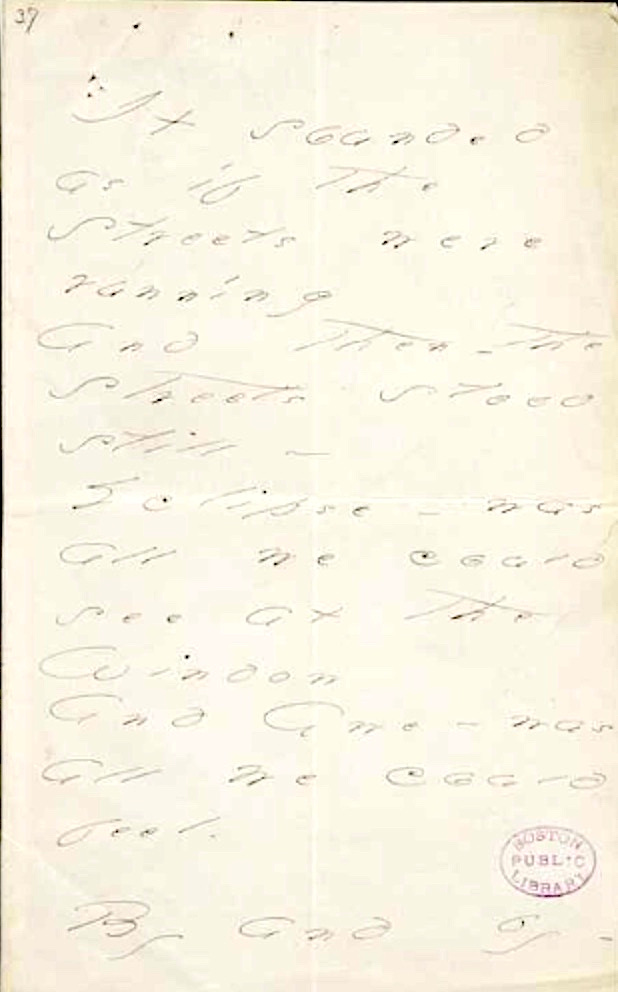 37
It sounded
as if the
Streets were
running
And then - the
Streets stood
still -
Eclipse - was
all we could
see at the
Window
And Awe - was
all we could
feel.
By and by -
BOSTON
PUBLIC
LIBRARY